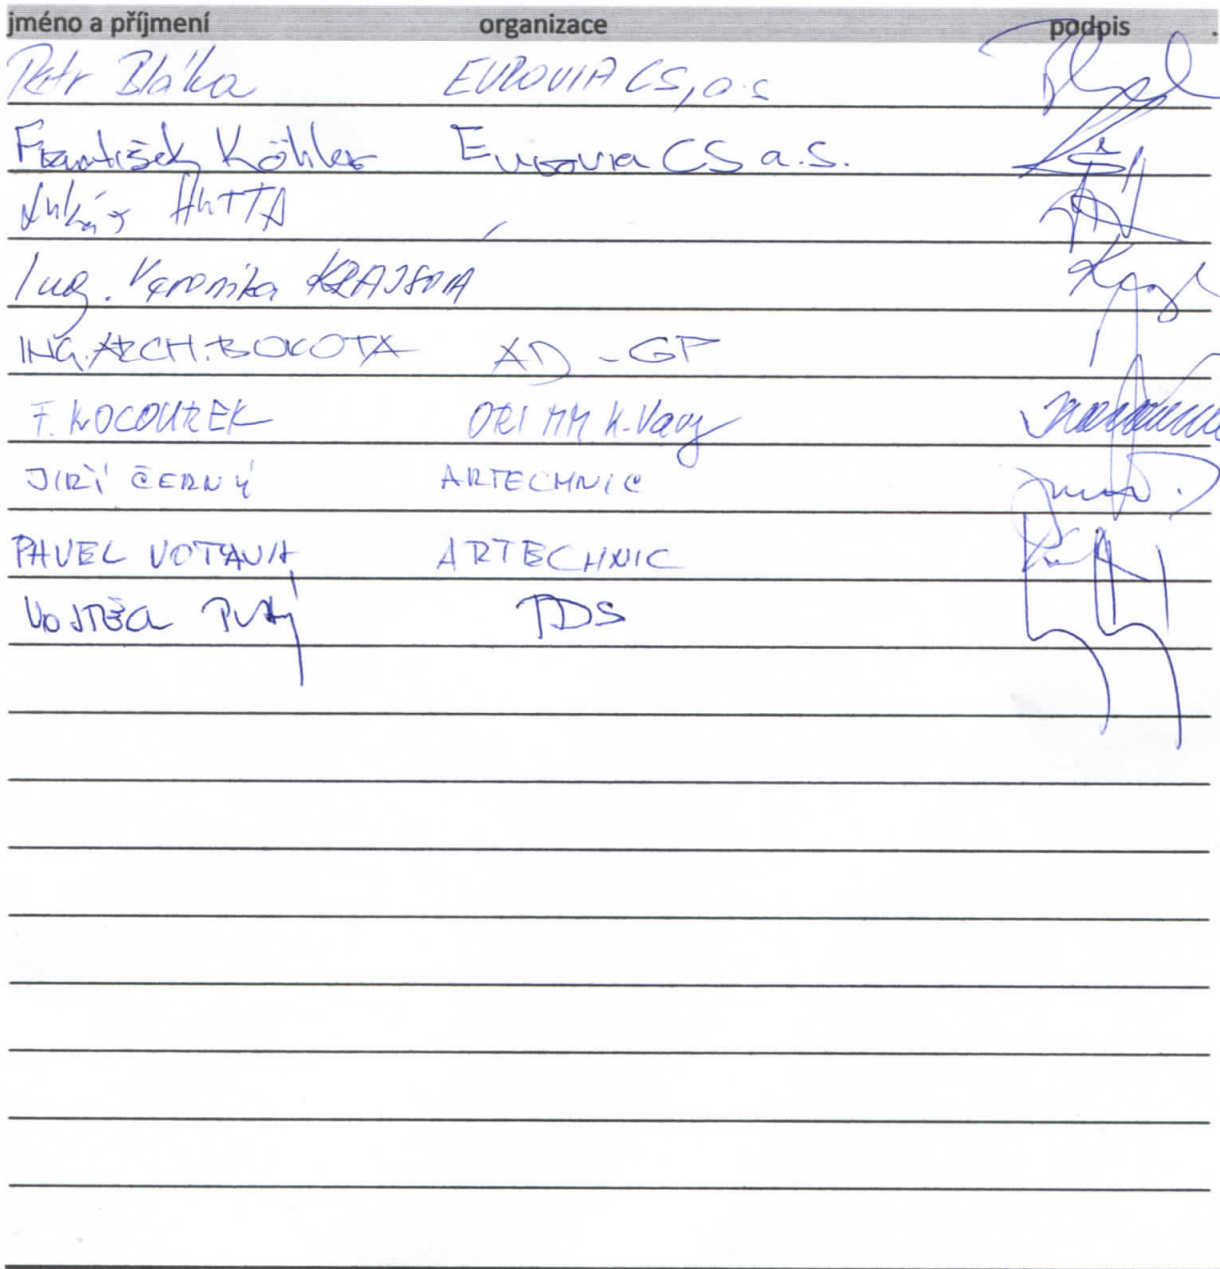 jméno a příjmení organizace podpis
Petr Bláha EUROVIA CS, a.s
František Köhler Eurovia CS a.s.
Lukáš HUTTA
Ing. Veronika KRAJSOVÁ
ING. ARCH. BOKOTA AD - GP
F. KOCOUREK ORI MM K. Vary
JIŘÍ ČERNÝ ARTECHNIC
PAVEL VOTAVA ARTECHNIC
VOJTĚCH TDS